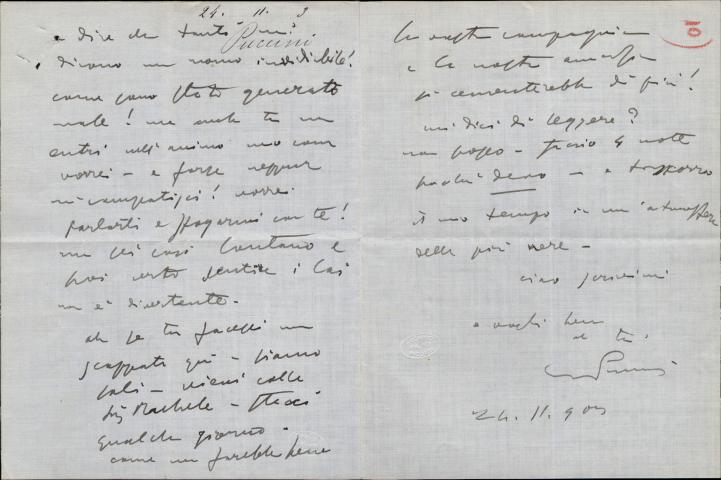 24. 11. 3
Puccini
e dire che tanti mi
dicono un uomo invidiabile!
come sono stato generato
male! ma anche tu non
entri nell'animo mio come
vorrei - e forse neppur
mi compatisci! vorrei
parlarti e sfogarmi con te!
ma sei così lontano e
poi certo sentire i lai
non è divertente.
ah se tu facessi una
scappata qui - siamo
soli - vieni colla
Sig Rachele - stacci
qualche giorno.
come mi farebbe bene
10
la vostra compagnia
e la nostra amicizia
si cementerebbe di più!
mi dici di leggere?
non posso - suono la notte
perchè devo - e trascorro
il mio tempo in un'atmosfera
delle più nere -
ciao scrivimi
e vogli bene
al tuo
Puccini
24. 11. 903